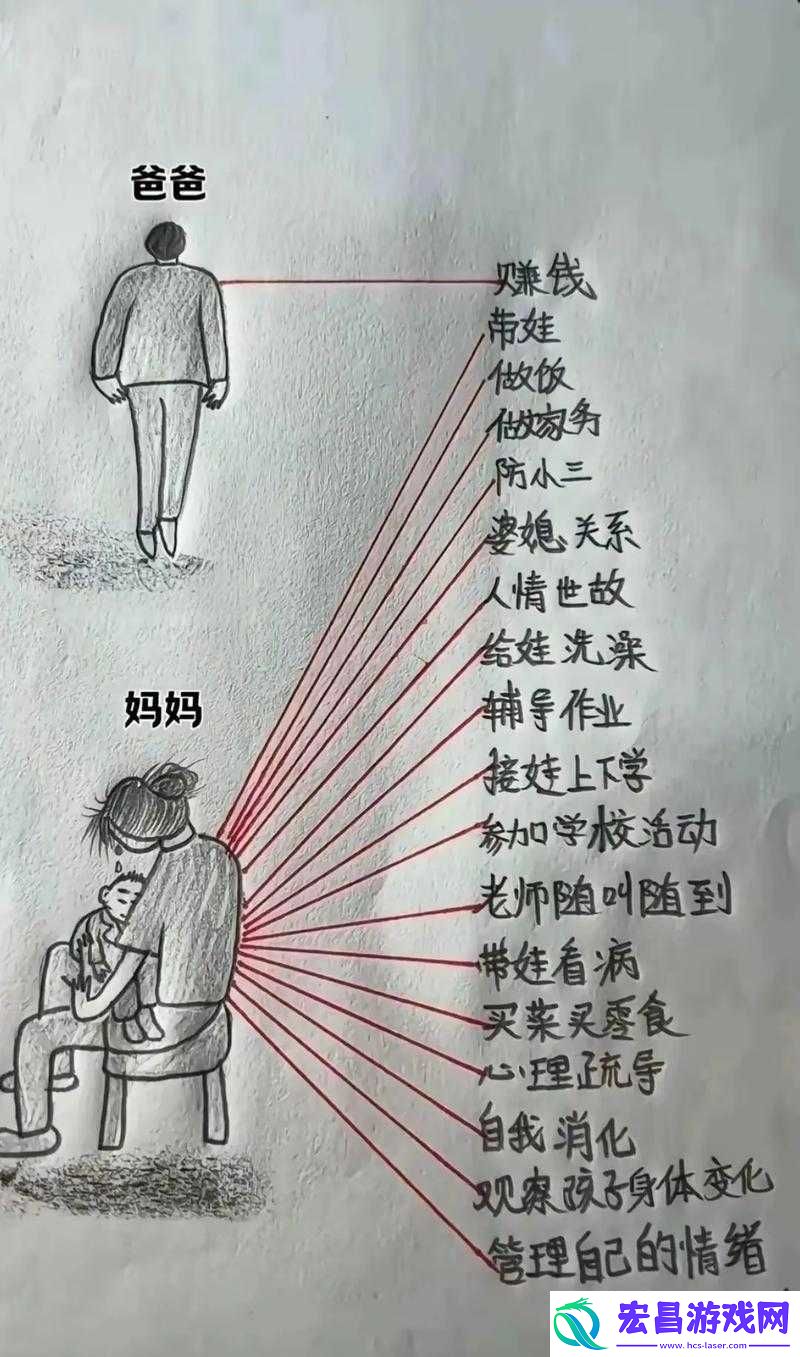 爸爸
赚钱
带娃
做饭
做家务
防小三
婆媳关系
人情世故
给娃洗澡
妈妈
辅导作业
接娃上下学
参加学校活动
老师随叫随到
带娃看病
买菜买零食
心理疏导
自我消化
观察孩子身体变化
管理自己的情绪
宏昌游戏网
www.hcs-laser.com